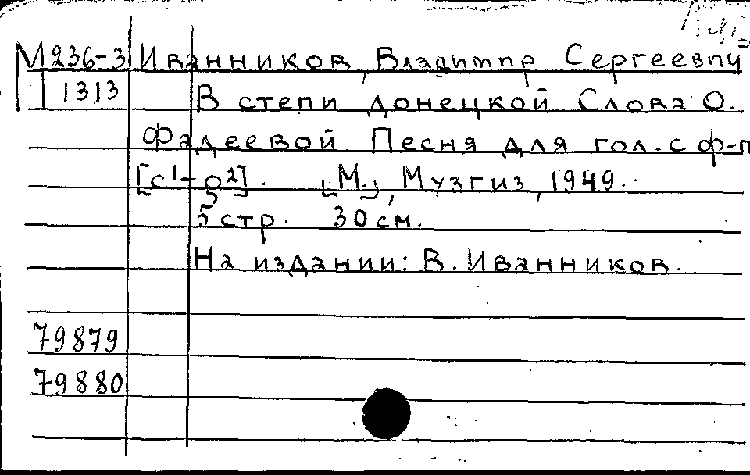 М236-3 Иванников, Владимир Сергеевич
1313 В степи донецкой Слова О.
Фадеевой. Песня для гол. с ф-п
[с¹- ²]. [М.], Музгиз, 1949.
5 стр. 30 см.
На издании: В. Иванников.
79879
79880